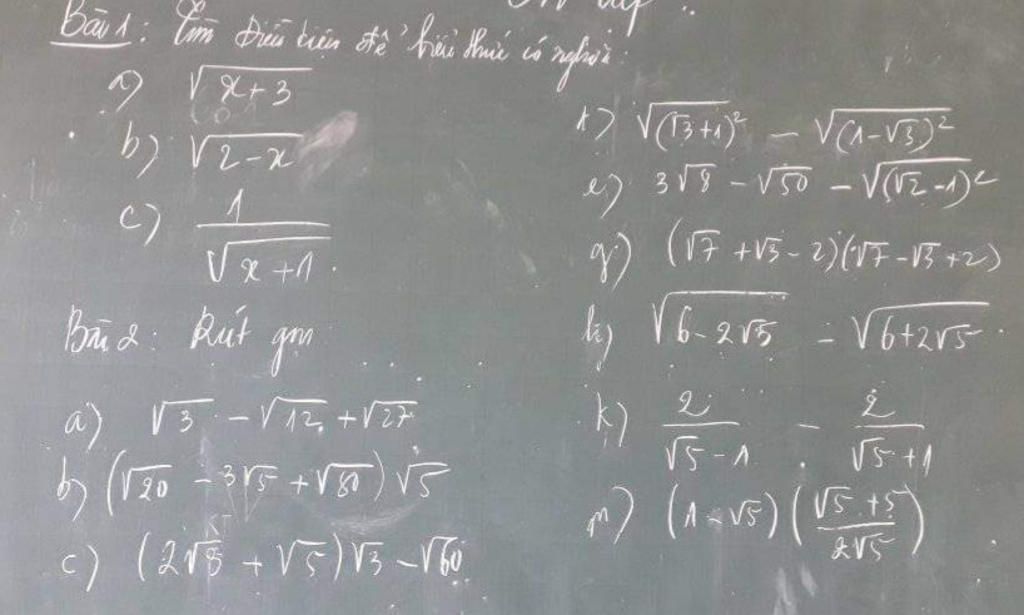 Bài 1: Tìm điều kiện để biểu thức có nghĩa:
a) √(x+3)
b) √(2-x)
c) 1/√(x+1)
Bài 2: Rút gọn
a) √3 - √12 + √27
b) (√20 - 3√5 + √80)√5
c) (2√8 + √5)√3 - √60
d) √((√3+1)²) - √((1-√3)²)
e) 3√8 - √50 - √((√2-1)²)
g) (√7 + √3 - 2)(√7 - √3 + 2)
h) √(6-2√5) - √(6+2√5)
k) 2/(√5-1) - 2/(√5+1)
m) (1-√5)((√5+5)/(2√5))